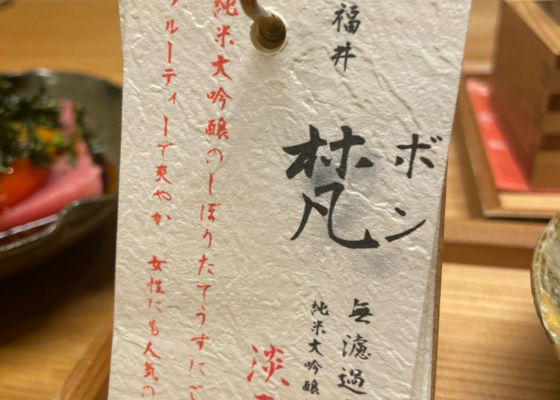 福井
ボン
梵
無濾過
純米大吟醸
淡
純米大吟醸のしぼりたてうすにご
フルーティーで爽やか 女性にも人気の